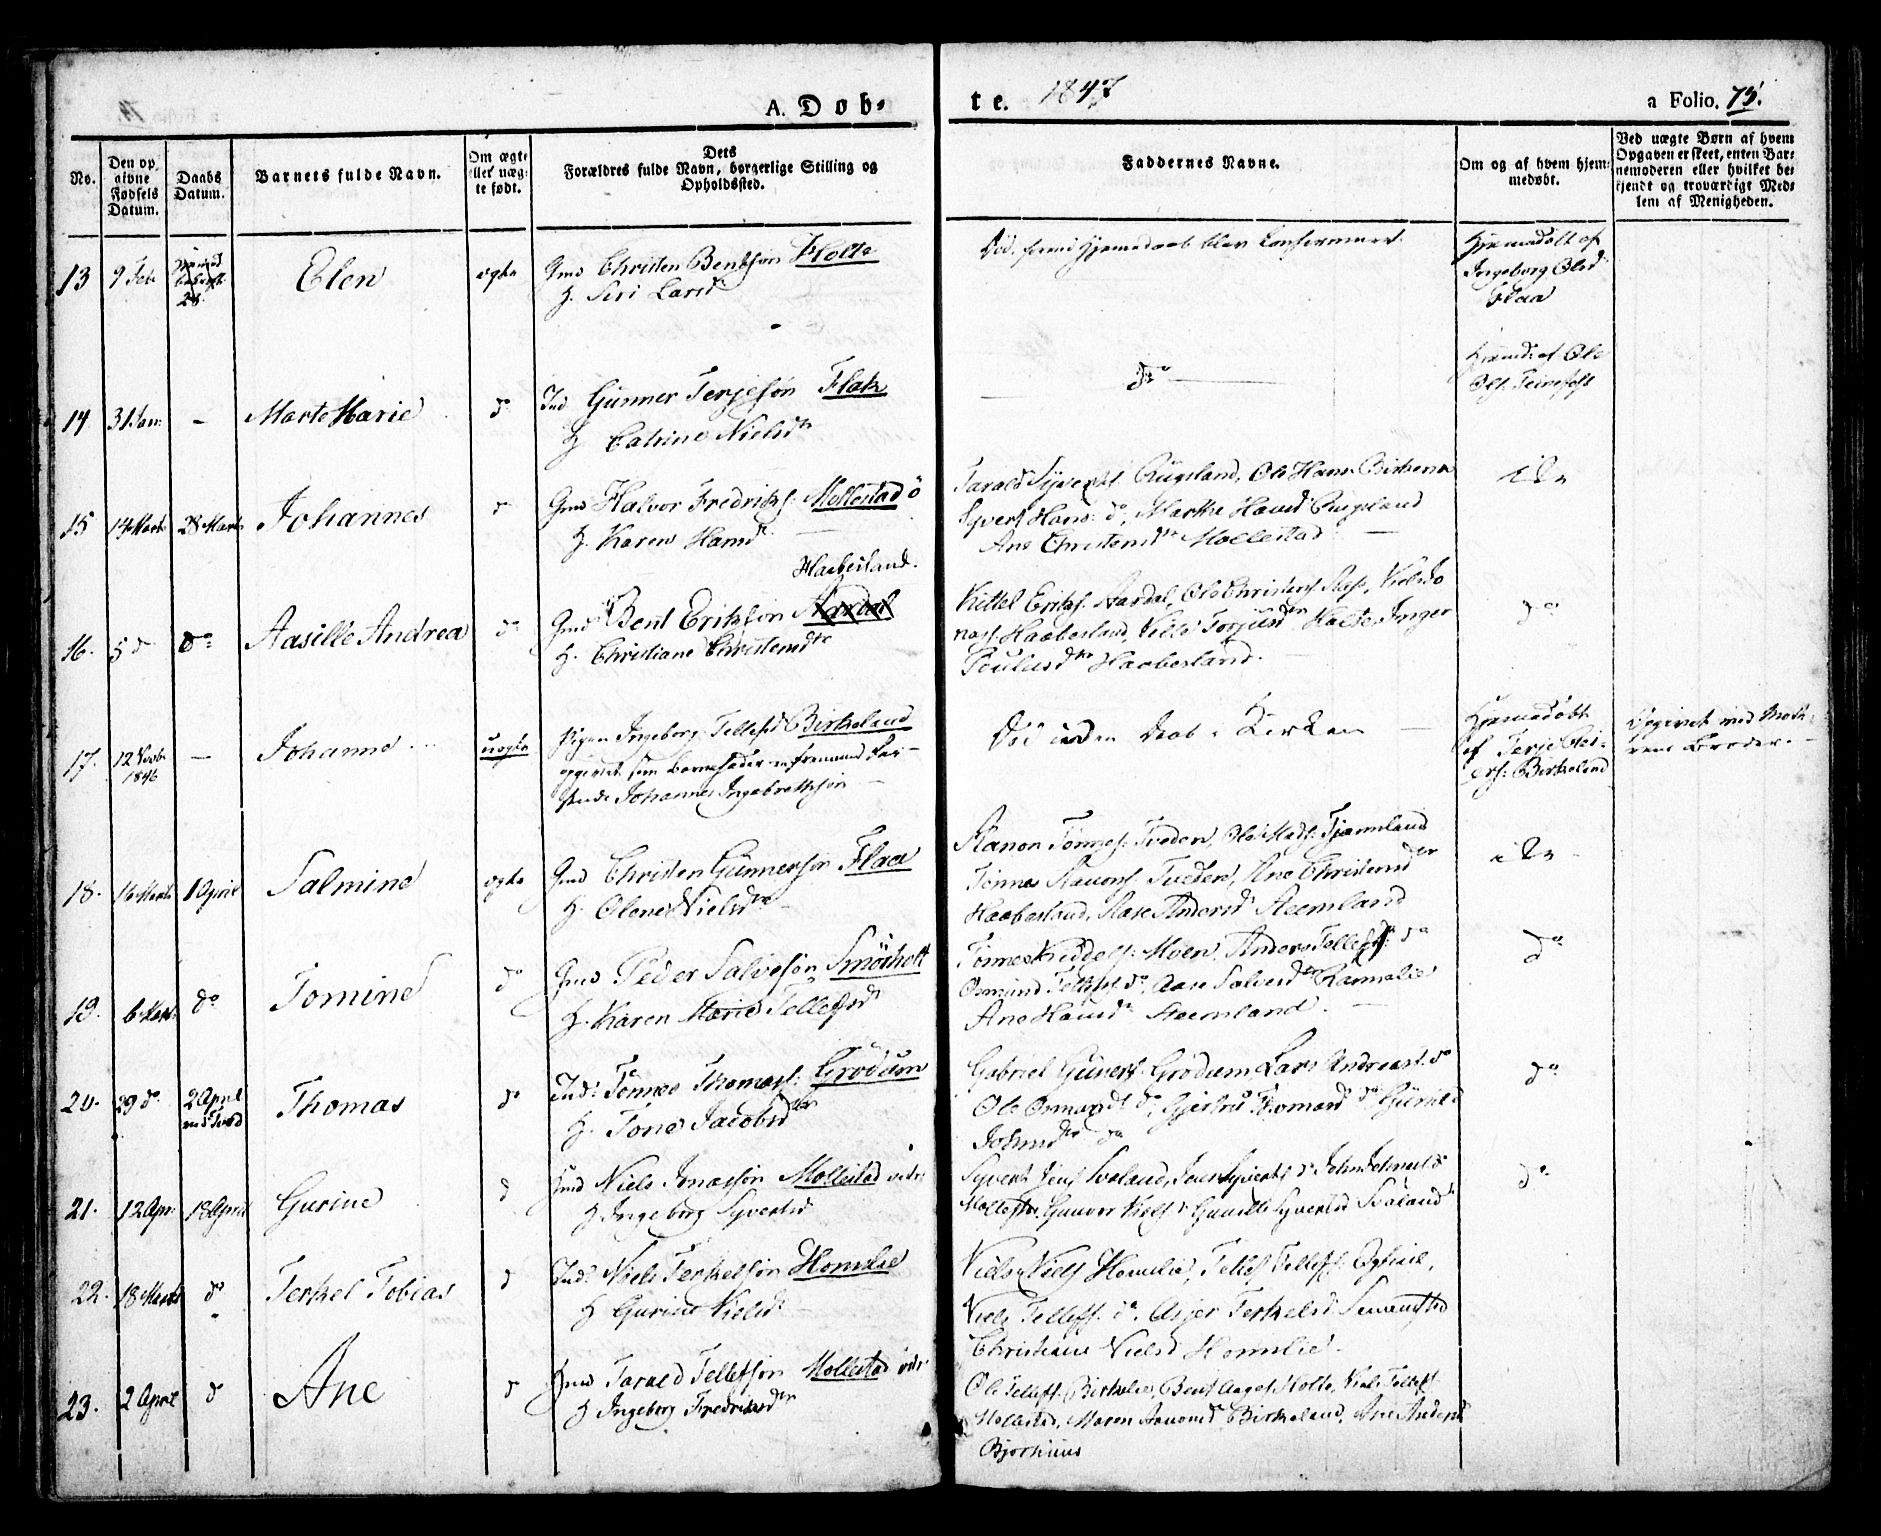 A. Døb-
te. 1847
a Folio. 75.
No.
Den opgivne Fødsels Datum.
Daabs Datum.
Barnets fulde Navn.
Om ægte eller uægte født.
Dets Forældres fulde Navn, borgerlige Stilling og Opholdssted.
Faddernes Navne.
Om og af hvem hjemmedøbt.
Ved uægte Børn af hvem Opgaven er skeet, enten Barnemoderen eller hvilket bekjendt og troværdigt Medlem af Menigheden.
13 9 Feb 28. Elen ægte Gmd Christen Bentsøn Holte
H. Siri Larsd
Død, førend Hjemmedaab blev Confirmeret
Hjemmedøbt af
Ingeborg Olsd
Flaa
14 31 Jan - Marte Marie do Ind Gunner Terjesøn Flak
H Catrine Nielsdtr
do
Hjemd: af Ole
Ols.
15 14 Marts 28 Marts Johannes do Gmd Halvor Fredriks: Mollestad ö
H. Karen Hansd
Tarald Syverts. Rugsland, Ole Hans. Birkena
Syvert Hans: do, Marthe Hansd Rugsland
Ane Christensdtr Mollestad
16. 5 do do Aasille Andrea do Gmd Bent Eriksøn Aardal
Haabesland.
H. Christiane Christensdtr
Kittel Eriks. Aardal, Ole Christens. Aas, Niels Jo
nass. Haabesland, Torjusdtr Holte, Inger
Poulsdtr Haabesland.
do
17. 12 1846 - Johanne uægte Pigen Ingeborg Tellefsd Birkeland
opgivet som Barnefader en fremmend Far-
ende Johannes Ingebretsøn
Død uden Daab i Kirken
Hjemmedøbt
af Terje
ers: Birkeland
Opgivet med Mode-
rens Broder.
18. 16 Marts 1 April Salmine ægte Gmd Christen Gunnersøn Flaa
H. Olene Nielsdtr
Aanon Tønnes: Tveden, Ole Mads. Tjømland
Tønnes Aanons. Tveden, Ane Christensdtr
Haabesland, Aase Andersd Steemland
19. 6 Marts do Tomine do Gmd Peder Salvesøn Smørholt
H. Karen Marie Tellefsd
Tønnes Moen, Anders Tellefs. do
Osmund Tellefs do, Aase Salvesdtr Ramslie
Ane Hansd Steemland.
do
20. 29 do 2 April Thomas do Ind: Tønnes Thomass: Grødum
H. Tone Jacobsdtr
Gabriel Guvers. Grødum Lars Andreas. do
Ole Osmunds do, Gjertrud Thomasd do, Gunild
Johnsdtr do
do
21. 12 Apr: 18 April Gurine do Gmd Niels Jonassøn Mollestad
H Ingeborg Syvertsd
Syvert Jens Svaland, Jens Syverts do John Johnsen do
Mollestad, Gunvor Niels do Gunille Syvertsd Svaland
do
22. 18 Marts do Terkel Tobias do Ind: Niels Terkelsøn Homelie
H Gurine Nielsd
Niels Niels Homelie, Tellef Tellefs.
Niels Tellefs. do. Asjer Terkelsd
Christiane Nielsd Homelie.
23. 2 April do Ane do Gmd Tarald Tellefsøn Mollestad
H Ingeborg Fredriksdtr
Ole Tellefs. Birkelie, Bent Aages. Holte, Niels Tellefs
Mollestad, Maren Aanonsd Birkeland, Ane Andersd
Bjorhuus